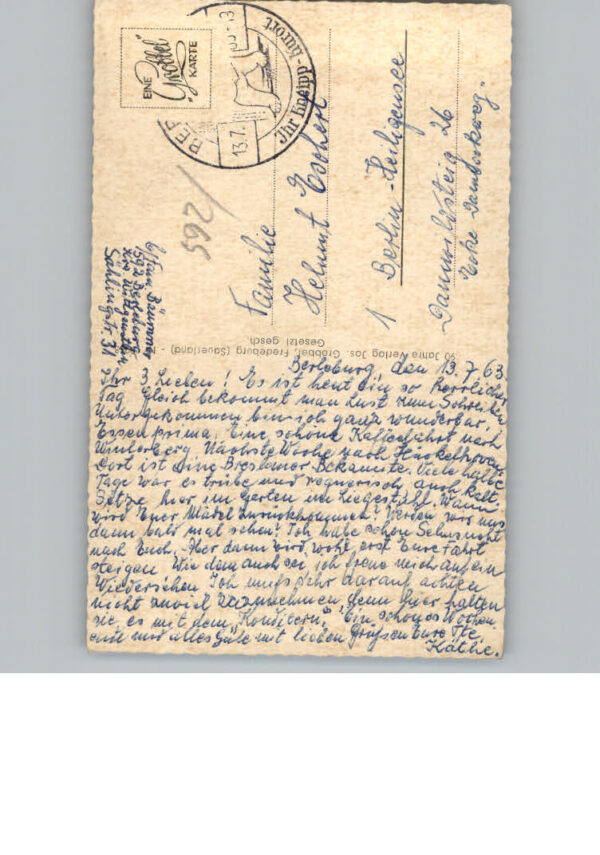 EINE
"Gröbbel"
KARTE
BER
13.7.
-13
Ihr Kneipp-Kurort
592/
b/Frau Brümmer
592 Berleburg
Krs Wittgenstein
Schlingstr. 31
Familie
Helmut Escherl
1 Berlin-Heiligensee
26
Ecke
90 Jahre Verlag Jos. Gröbbel, Fredeburg (Sauerland)
Gesetzl gesch
Berleburg, den 13.7.63.
Ihr 3 Lieben! Es ist heut ein so herrlicher
Tag. Gleich bekommt man Lust zum Schreiben
Untergekommen bin ich ganz wunderbar,
Essen prima. Eine schöne Kaffeefahrt nach
Winterberg. Nächste Woche nach
Dort ist eine Breslauer Bekannte. Viele halbe
Tage war es trübe und regnerisch auch kalt.
Sitze hier im Garten im Liegestuhl. Wann
wird Euer Mädel zurückkommen? Werden wir uns
dann bald mal sehen? Ich habe schon Sehnsucht
nach Euch. Aber dann wird wohl erst Eure Fahrt
steigen. Wie dem auch sei, ich freue mich auf ein
Wiedersehen. Ich muß sehr darauf achten
nicht zuviel zuzunehmen, denn hier halten
sie es mit dem "Konditern". Ein schönes Wochen
ende und alles Gute mit lieben Grüßen Eure Tte.
Käthe.